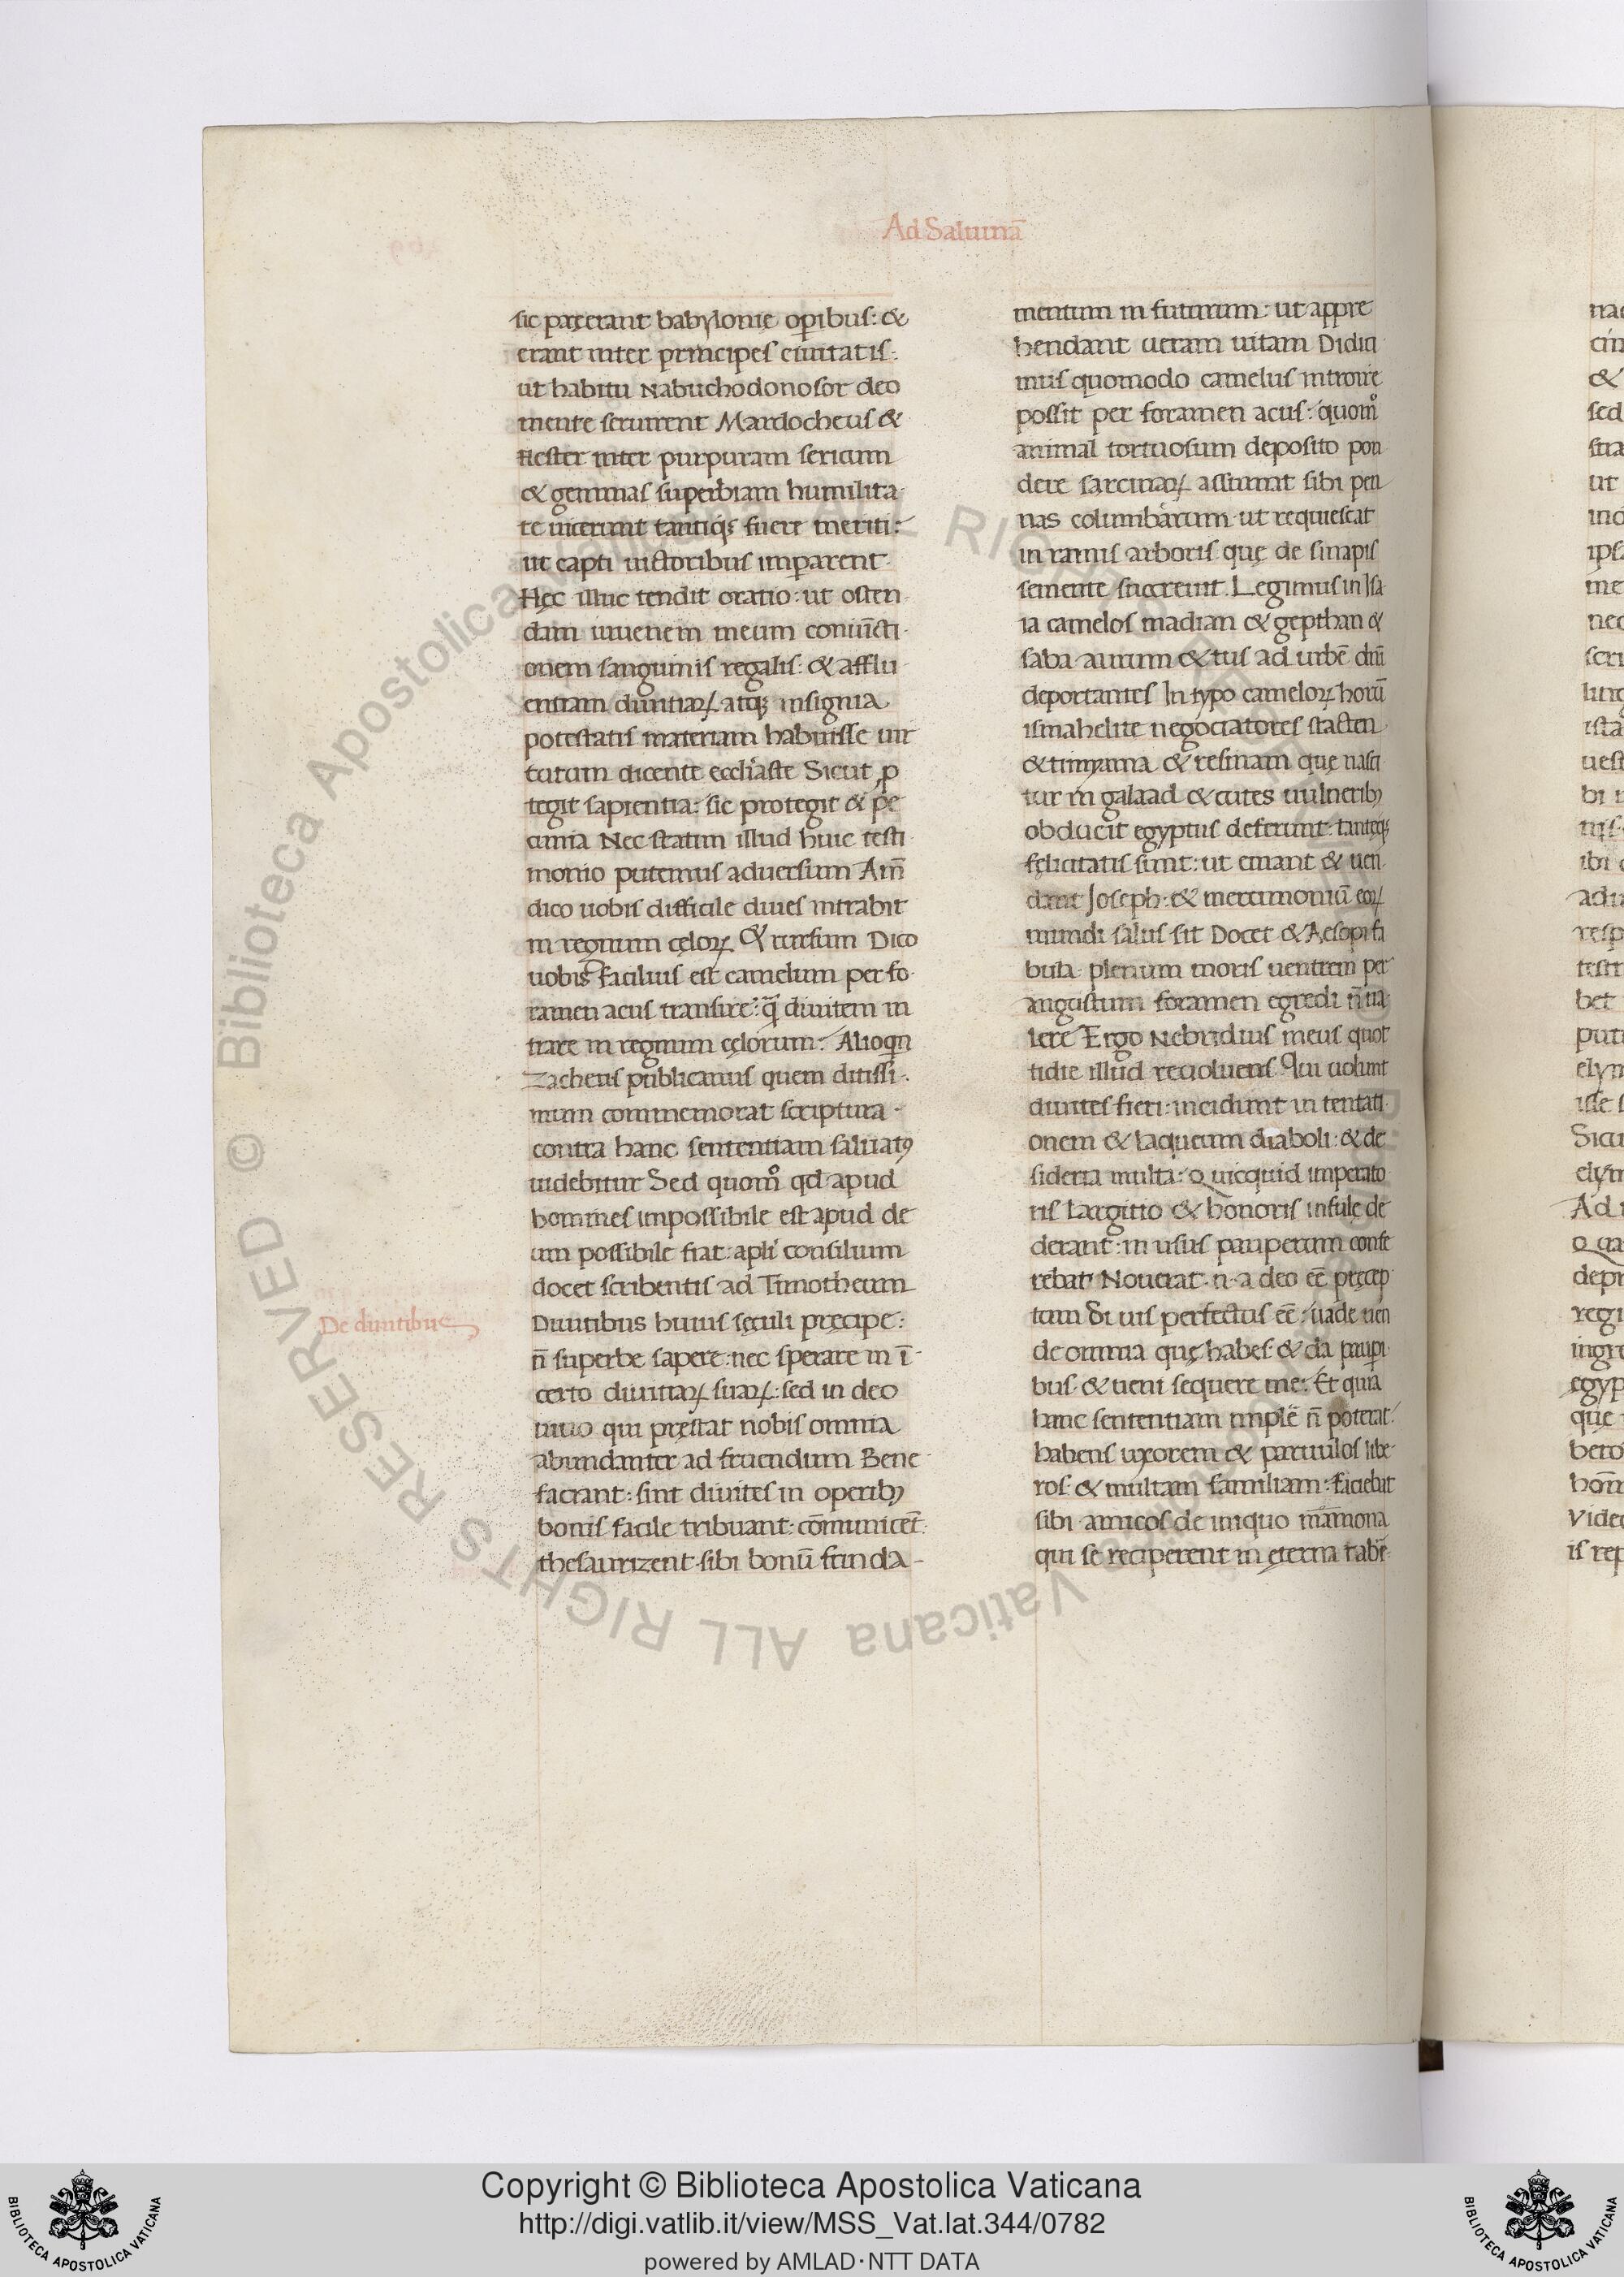 Ad Saluinā
sic pręerant babylonię operibus: &
erant inter principes ciuitatis:
ut habitu Nabuchodonosor deo
mente seruirent Mardocheus &
Hester inter purpuram sericum
& gemmas superbiam humilita-
te uicerunt tantiq; fuere meriti:
ut capti uictoribus imperarent.
Hęc illuc tendit oratio: ut osten
dam iuuenem meum coniūcti-
onem sanguinis regalis: & afflu
entiam diuitiaꝝ atq; insignia
potestatis materiam habuisse uir
tutum dicente eccl'iaste Sicut ꝓ
tegit sapientia: sic protegit & pe
cunia Nec statim illud huic testi
monio putemus aduersum Am̄
dico uobis difficile diues intrabit
in regnum cęloꝝ Et rursum Dico
uobis Facilius est camelum per fo-
ramen acus transire: q̄ diuitem in
trare in regnum cęlorum: Alioqn
Zacheus publicanus quem ditissi-
mum commemorat scriptura
contra hanc sententiam saluatꝰ
uidebitur Sed quom̊ qd apud
homines impossibile est apud de
um possibile fiat: apl'i consilium
docet scribentis ad Timotheum
De diuitibus
Diuitibus huius sęculi pręcipe:
n̄ superbe sapere: nec sperare in ī
certo diuitiaꝝ suaꝝ: sed in deo
uiuo qui pręstat nobis omnia
abundanter ad fruendum Bene
faciant: sint diuites in operibꝰ
bonis facile tribuant: cōmunicēt:
thesaurizent sibi bonū funda-
mentum in futurum: ut appre
hendant ueram uitam Didici
mus quomodo camelus introire
possit per foramen acus: quom̊
animal tortuosum deposito pon
dere sarcinaꝝ assumat sibi pen
nas columbarum ut requiescat
in ramis arboris quę de sinapis
semente succreuit. Legimus in Isa
ia camelos madian & gephan &
saba aurum & tus ad urbē dn̄i
deportantes In typo cameloꝝ horū
ismahelite negociatores stacten
& timyama & resinam que nasci
tur in galaad & cutes uulneribꝰ
obducit egyptus deferunt: tanteq;
fęlicitatis sunt: ut emant & uen
dant Joseph: & mercimoniū eoꝝ
mundi salus sit Docet & Aesopi fa
bula plenum moris uentrem per
angustum foramen egredi n̄ ua
lere Ergo Nebridius meus quot
tidie illud reuoluens Qui uolunt
diuites fieri: incidunt in tentati
onem & laqueum diaboli: & de
sideria multa: Quicquid imperato
ris largitio & honoris infulę de
derant: in usus pauperum confe
rebat Nouerat .n. a deo eē pręcep
tum Si uis perfectus eē: uade uen
de omnia quę habes & da paupi
bus & ueni sequere me: Et quia
hanc sententiam implē n̄ poterat:
habens uxorem & paruulos libe
ros & multam familiam: faciebat
sibi amicos de iniquo māmona
qui se reciperent in ęterna tabēr
Copyright © Biblioteca Apostolica Vaticana
http://digi.vatlib.it/view/MSS_Vat.lat.344/0782
powered by AMLAD·NTT DATA